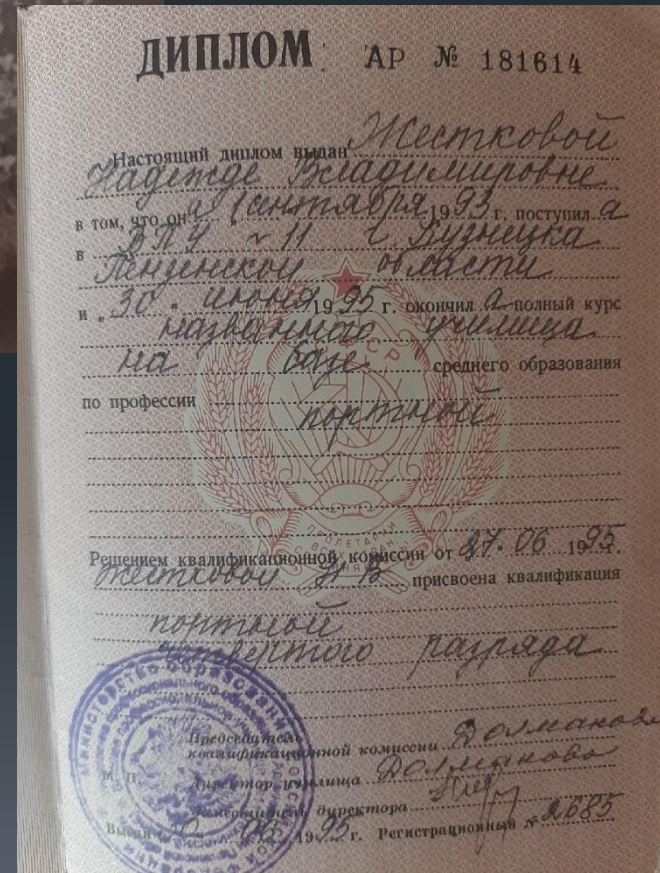 ДИПЛОМ АР № 181614
Настоящий диплом выдан Жестковой
Надежде Владимировне
в том, что она „1 сентября 1993 г. поступила
в ВПУ № 11 г. Кузнецка
Пензенской области
и „30„ июня 1995 г. окончила полный курс
названного училища
на базе среднего образования
по профессии
портной
СССР
ПРОЛЕТАРИИ
Решением квалификационной комиссии от 27.06 1995 г.
Жестковой Н В присвоена квалификация
портной
четвертого разряда
Министерство образования
Председатель
квалификационной комиссии
М. П. Директор училища
Заместитель директора
Выдан 06 1995 г. Регистрационный № 2685